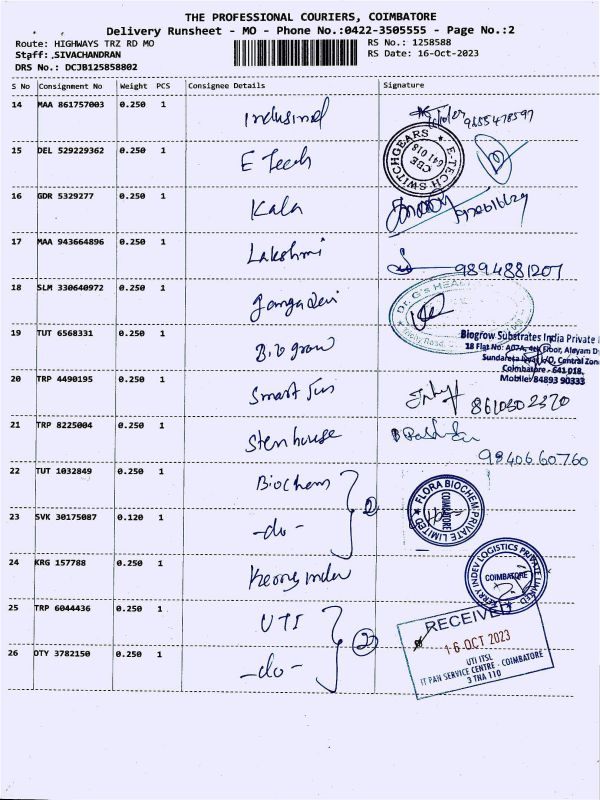 THE PROFESSIONAL COURIERS, COIMBATORE
Delivery Runsheet - MO - Phone No.:0422-3505555 - Page No.:2
Route: HIGHWAYS TRZ RD MO
RS No.: 1258588
Staff: SIVACHANDRAN
RS Date: 16-Oct-2023
DRS No.: DCJB125858802
S No Consignment No Weight PCS Consignee Details Signature
14 MAA 861757003 0.250 1 Indusind
15 DEL 529229362 0.250 1 E Tech
E-TECH SWITCHGEARS
CBE
641 018
16 GDR 5329277 0.250 1 Kala
17 MAA 943664896 0.250 1 Lakshmi 9894881207
18 SLM 330640972 0.250 1 Gangadevi
Dr. G's
19 TUT 6568331 0.250 1 Biogrow
Biogrow Substrates India Private
18 Flat No: A07A, 4th Floor, Alayam
Coimbatore - 641 018.
Mobile: 84893 90333
20 TRP 4490195 0.250 1 Smart Sun 8610502320
21 TRP 8225004 0.250 1 Stenhouse
98406.60760
22 TUT 1032849 0.250 1 Biochem
FLORA BIOCHEM PRIVATE LIMITED
COIMBATORE
2
23 SVK 30175087 0.120 1 -do-
24 KRG 157788 0.250 1 Kerry indev
KERRY INDEV LOGISTICS PRIVATE LIMITED
COIMBATORE
25 TRP 6044436 0.250 1 UTI
2
RECEIVED
16 OCT 2023
UTI ITSL
IT PAN SERVICE CENTRE - COIMBATORE
3 THA 110
26 OTY 3782150 0.250 1 -do-